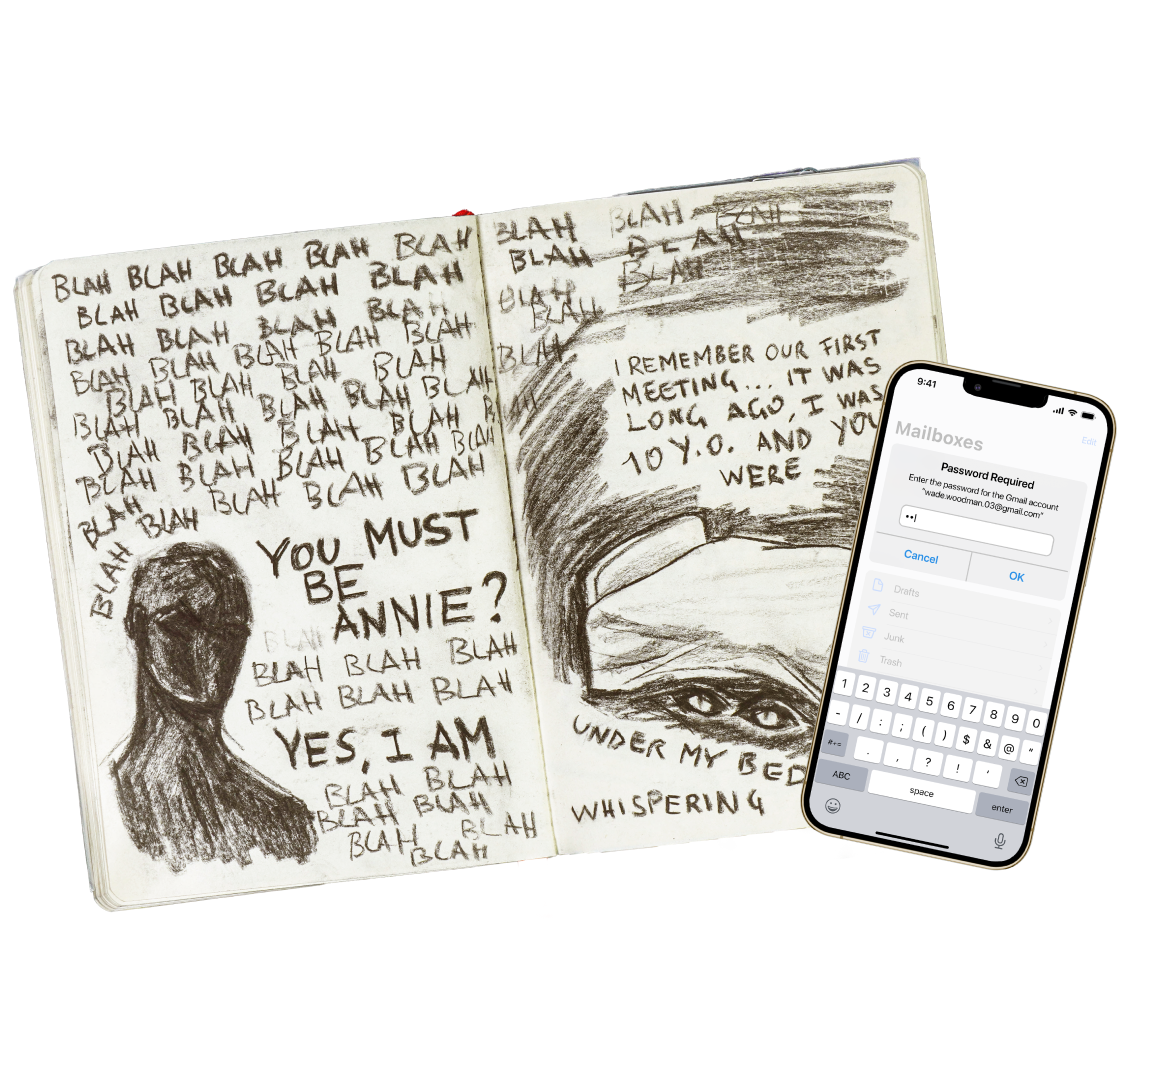 BLAH BLAH BLAH BLAH BLAH
BLAH BLAH BLAH BLAH
BLAH BLAH BLAH BLAH
BLAH BLAH BLAH BLAH BLAH
BLAH BLAH BLAH BLAH
BLAH BLAH BLAH BLAH BLAH
BLAH BLAH BLAH BLAH BLAH
BLAH BLAH BLAH BLAH
BLAH BLAH BLAH BLAH
BLAH BLAH
BLAH
YOU MUST
BE
ANNIE?
BLAH
BLAH BLAH BLAH
BLAH BLAH BLAH
YES, I AM
BLAH BLAH
BLAH BLAH
BLAH BLAH
BLAH
BLAH BLAH BLAH
BLAH BLAH
BLAH BLAH
BLAH
BLAH
I REMEMBER OUR FIRST
MEETING... IT WAS
LONG AGO, I WAS
10 Y.O. AND YOU
WERE
UNDER MY BED
WHISPERING
9:41
Edit
Mailboxes
Password Required
Enter the password for the Gmail account
"wade.woodman.03@gmail.com"
••
Cancel OK
Drafts
Sent
Junk
Trash
1 2 3 4 5 6 7 8 9 0
- / : ; ( ) $ & @ "
#+= . , ? ! '
ABC space enter